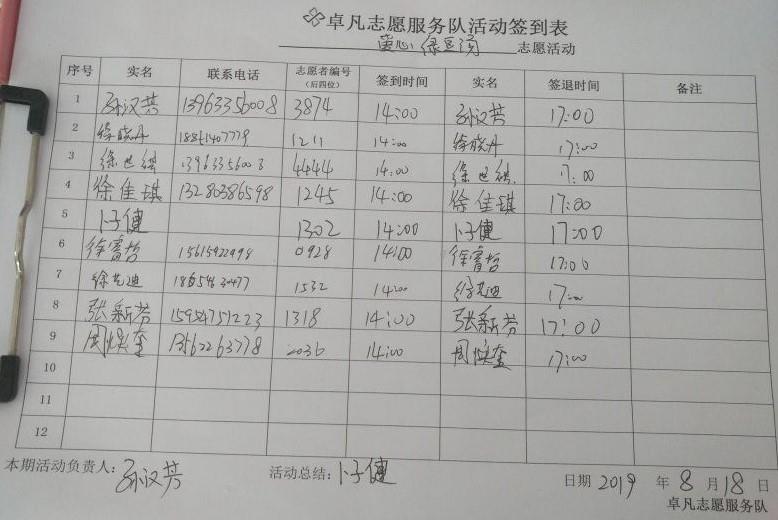 卓凡志愿服务队活动签到表
志愿活动
序号 实名 联系电话 志愿者编号(后四位) 签到时间 实名 签退时间 备注
1 孙汉芳 13963356008 3874 14:00 孙汉芳 17:00
2 徐晓丹 18841407779 1211 14:00 徐晓丹 17:00
3 徐 4444 14:00 徐 17:00
4 徐佳琪 13280386598 1245 14:00 徐佳琪 17:00
5 卜子健 1302 14:00 卜子健 17:00
6 徐睿哲 15615922998 0928 14:00 徐睿哲 17:00
7 徐 1532 14:00 徐 17:00
8 张新芳 15954751223 1318 14:00 张新芳 17:00
9 周焕奎 13562263778 2036 14:00 周焕奎 17:00
10
11
12
本期活动负责人: 孙汉芳 活动总结: 卜子健 日期 2019 年 8 月 18 日
卓凡志愿服务队